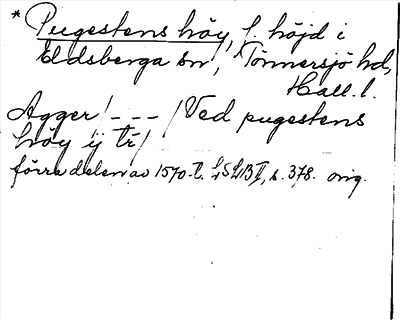 * Pugestens höy, f. höjd i
Eldsberga sn, Tönnersjö hd,
Hall. l.
Agger / - - - / Ved pugestens
höy ij tr /
förra delen av 1570-t. LSLB II, s. 378. orig.